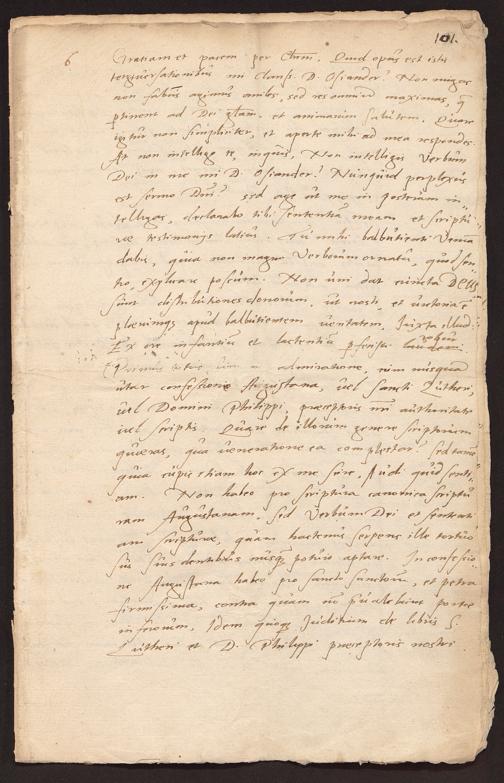 101.
6 Gratiam et pacem per Chm̄. Quid opus est istis
tergiuersationibus mi clariss. D. Osiander? Non nugas
non fabulas agimus ambo, sed res omniū maximas, q̨
ptinent ad Dei gl̄am, et animarum salutem. Quare
igitur non simpliciter, et aperte mihi ad mea respondes.
At non intelligo te, inquis. Non intelligis Verbum
Dei in me mi D. Osiander? Nunquid perplexus
est sermo Dn̄i? sed age ut me in posterum in-
telligas, declarabo tibi sententiā meam et scriptu-
rae testimonijs latius. Tu mihi balbutienti Veniam
dabis, quia non magno Verborum ornatu, quod sen-
tio, explicare possum. Non uni dat cuncta DEUS
sunt distributiones donorum, ut nosti, et victoria ē
plerumq apud balbutientem ueritatem. Iuxta illud.
Ex ore infantiū et lactentiū pfecisti laudem.
admiratione, nunquam
utar confessione Augustana, uel sancti Lutheri,
uel Domini Philippi, praeceptoris mei authoritate
uel scriptis. Quare de illorum genere scriptorum
quaeras, qua ueneratione ea complectar? sed tamē
quia cupis etiam hoc ex me scire, Audi quid senti-
am. Non habeo pro scriptura canonica scriptu-
ram Augustanam, sed Verbum Dei et sententi-
am scripturae, quam hactenus serpens ille tortuo-
sus suis dentibus nusq̃ potuit aptare. In confessio-
ne Augustana habeo pro sancto sanctorū, et petra
firmissima, contra quam nō praeualebunt portae
inferorum. Idem quoq iudicium de libris S.
Lutheri et D. Philippi praeceptoris nostri